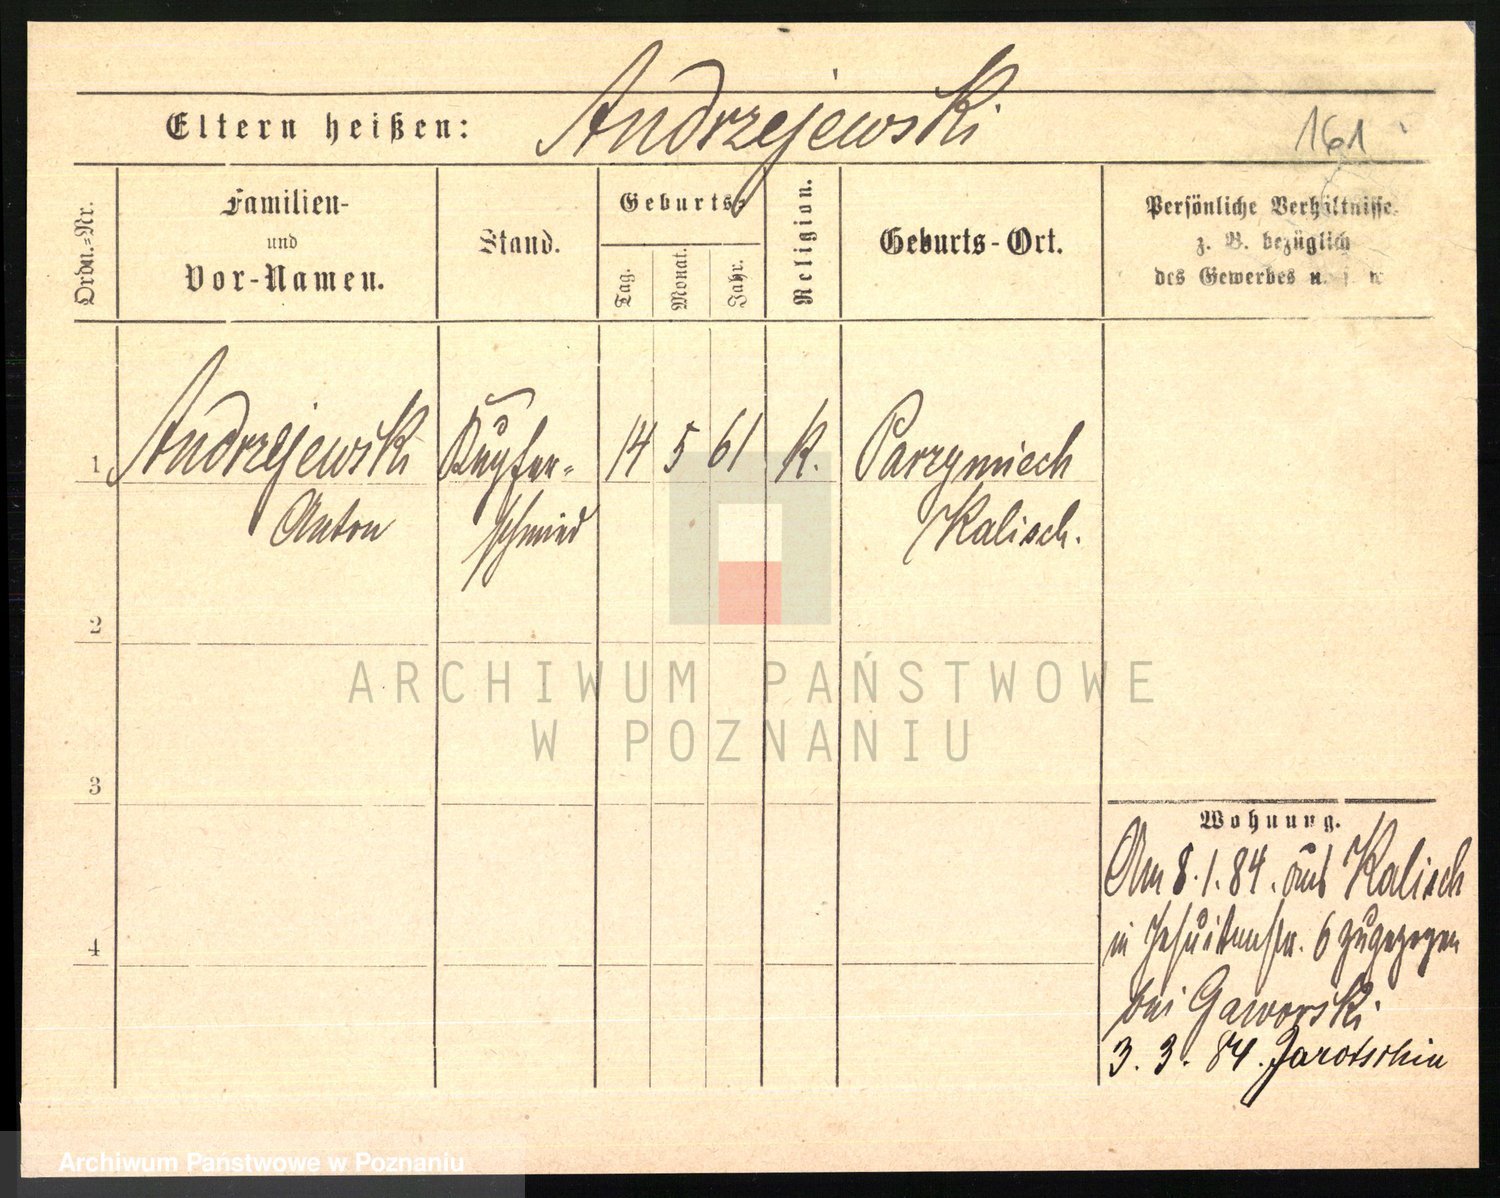 Eltern heißen: Andrzejewski
161
Ordn.=Nr.
Familien-
und
Vor-Namen.
Stand.
Geburts-
Tag.
Monat.
Jahr.
Religion.
Geburts-Ort.
Persönliche Verhältnisse
z. B. bezüglich
des Gewerbes u. s. w
1 Andrzejewski Kupfer= 14 5 61 K. Parzymiech
Anton schmied Kalisch.
2
3
4
Wohnung.
Am 8.1.84. aus Kalisch
in Jesuitenstr. 6 zugezogen
bei Gaworski
3. 3. 84. Jarotschin
ARCHIWUM PAŃSTWOWE
W POZNANIU
Archiwum Państwowe w Poznaniu